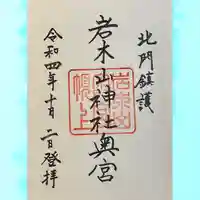 北門鎮護
岩木山神社奥宮
令和四年十月二日登拝